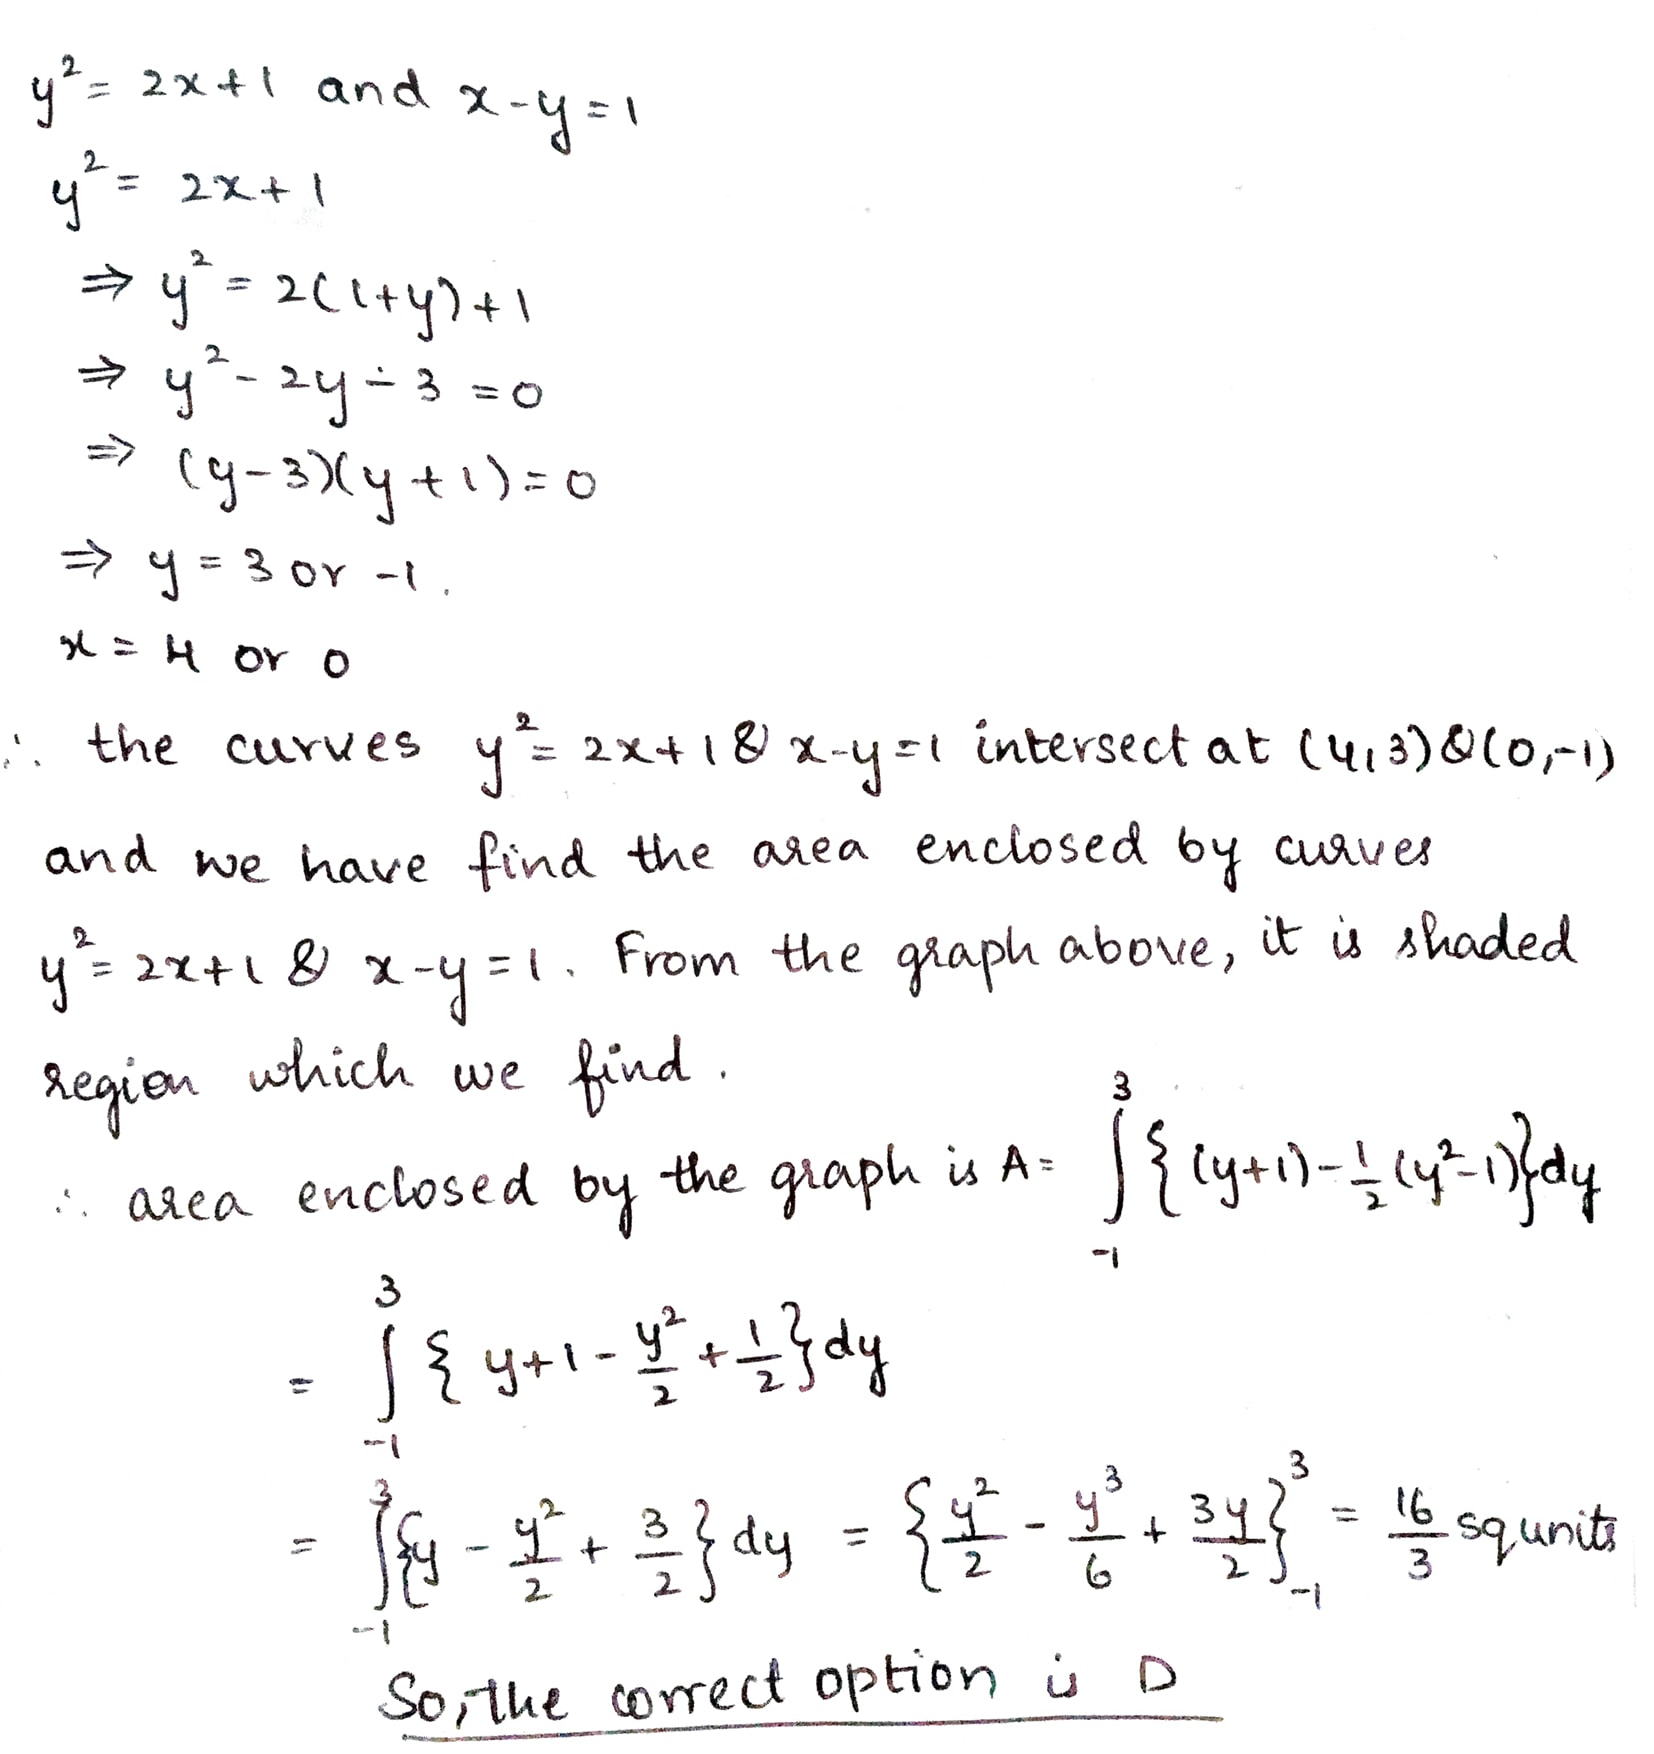 y² = 2x+1 and x-y=1
y² = 2x+1
⇒ y² = 2(1+y)+1
⇒ y² - 2y - 3 = 0
⇒ (y-3)(y+1)=0
⇒ y = 3 or -1.
x = 4 or 0
∴ the curves y²= 2x+1 & x-y=1 intersect at (4,3)&(0,-1)
and we have find the area enclosed by curves
y²= 2x+1 & x-y=1. From the graph above, it is shaded
region which we find.
∴ area enclosed by the graph is A= ∫₋₁³ {(y+1)-½(y²-1)}dy
= ∫₋₁³ { y+1 - y²/2 + 1/2 }dy
= ∫₋₁³ {y - y²/2 + 3/2} dy = {y²/2 - y³/6 + 3y/2}₋₁³ = 16/3 sq units
So, the correct option is D